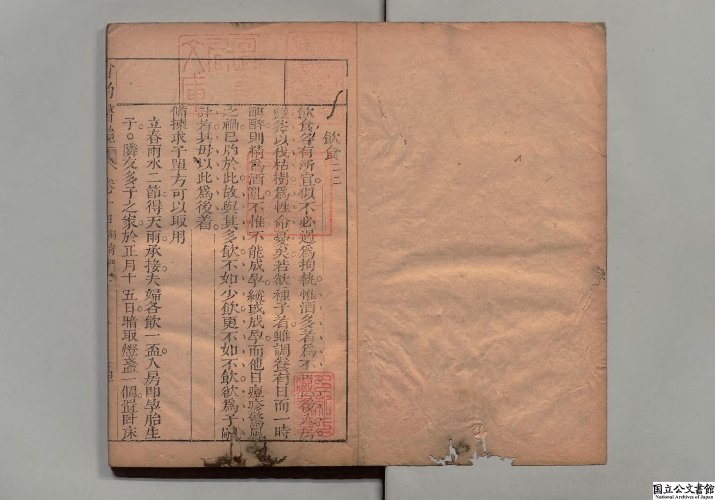 飲食三
飲食各有所宜似不必過為拘執惟酒多者為不
以伐枯樹為性命憂矣若欲種子者雖調養有日而一時
醉則精為酒亂不惟不能成孕縱或成孕而他日痘疹驚風
之禍已胎於此故與其多飲不如少飲更不如不飲欲為子嗣
計者其毋以此為後着
備揀求子單方可以取用
立春雨水二節得天雨承接夫婦各飲一盃入房即孕胎生
子。隣友多子之家於正月十五日暗取燈盞一個置卧床
文庫
国立公文書館
National Archives of Japan